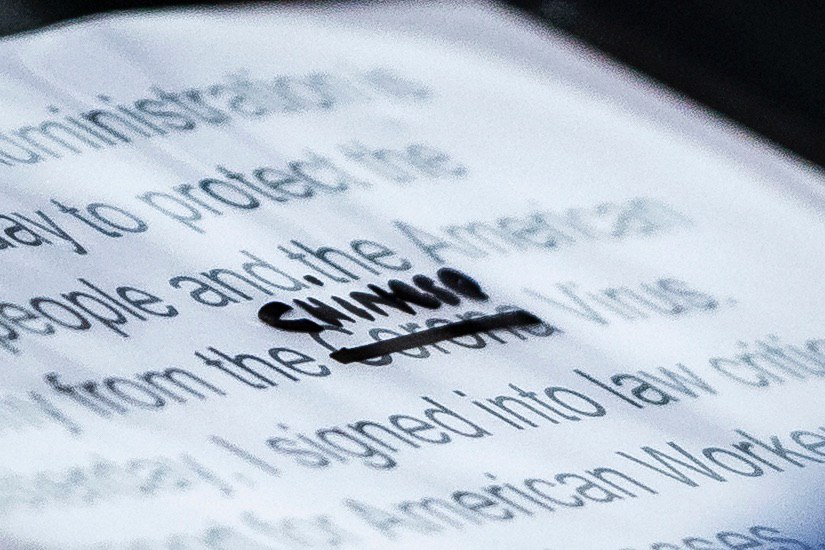 administration is
day to protect the
people and the American
CHINESE
from the Corona Virus.
I signed into law critic
for American Worke